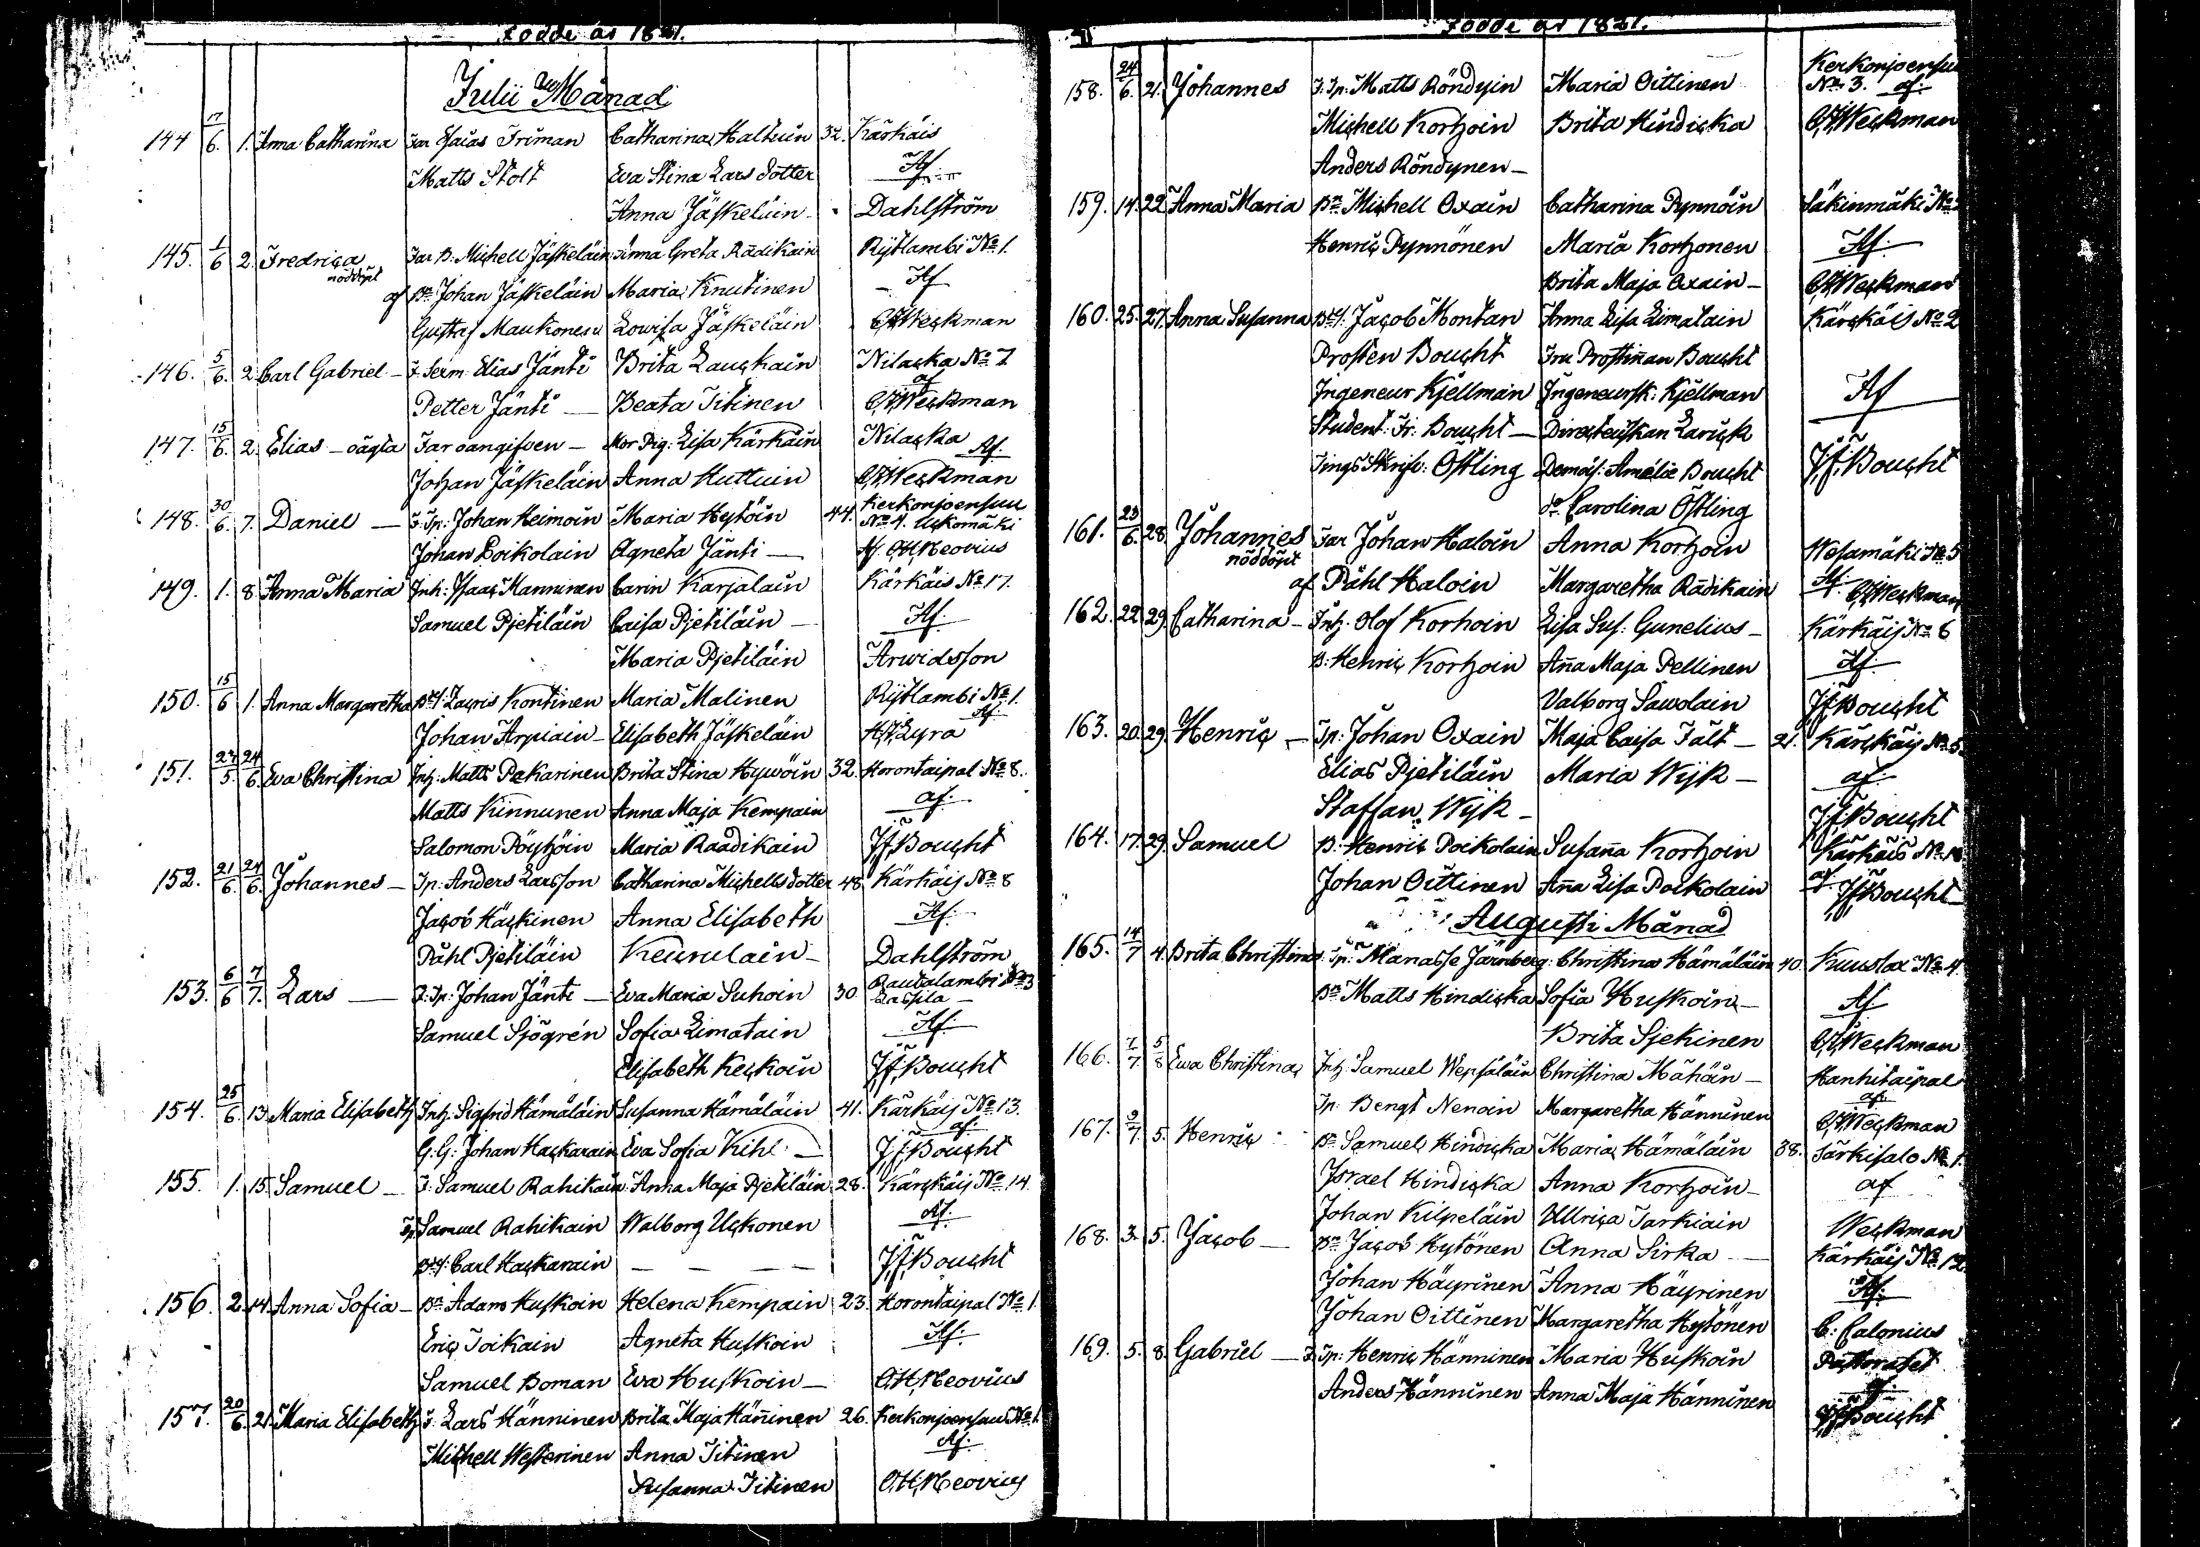 Födde år 1821.
Julii Månad
144 17/6. 1. Anna Catharina Far Esaias Friman Catharina Haltuin 32. Kärkäis
Matts Stolt Eva Stina Lars dotter Af
Anna Jäskeläin Dahlström
145. 1/6 2. Fredrica Far B. Michell Jäskeläin Anna Greta Rädikain Rijtlambi No 1.
nöddöpt af Bn Johan Jäskeläin Maria Knutinen Af
Gustaf Maukonen Lowisa Jäskeläin C.H. Weckman
146. 5/6. 2 Carl Gabriel F. Serm. Elias Jänti Brita Lauckain Nilacka No 7
af
Petter Jänti Beata Titinen C.H. Weckman
147. 15/6. 2. Elias - oägta Far oangifven - Mor Pig: Lisa Kärkäin Nilacka Af.
Johan Jäskeläin Anna Huttuin C.H. Weckman
148. 30/6. 7. Daniel F. Tp: Johan Heimoin Maria Hytöin 44. Kerkonjoensuu
No 4. Uckomäki
Johan Poikolain Agneta Jänti Af. O.H. Neovius
149. 1. 8. Anna Maria Inh: Isaac Manninen Carin Karjalain Kärkäis No 17.
Samuel Pjetiläin Caisa Pjetiläin Af
Maria Pjetiläin Arwidsson
150. 15/6 1. Anna Margaretha Lauris Kontinen Maria Malinen Rijtlambi No 1.
Af.
Johan Arpiain Elisabeth Jäskeläin Lyra
151. 27/5. 24/6. Eva Christina Inh: Matts Pekarinen Brita Stina Hywöin 32. Horontaipal No 8.
Matts Kinnunen Anna Maja Kempain af.
Salomon Pöyhöin Maria Raadikain J.F. Bought
152. 21/6. 24/6. Johannes Tp: Anders Larsson Catharina Michells dotter 48. Kärkäis No 8
Jacob Häckinen Anna Elisabeth Af.
Påhl Pjetiläin Keurulain Dahlström
153. 6/6 7/7. Lars F. Tp: Johan Jänti Eva Maria Suhoin 30 Rautalambi No 3
Lassila
Samuel Sjögrén Sofia Limatain Af.
Elisabeth Keckoin J.F. Bought
154. 25/6. 13 Maria Elisabeth Inh: Sigfrid Hämäläin Susanna Hämäläin 41. Kärkäis No 13.
af.
G.G: Johan Hackarain Eva Sofia Kihl J.F. Bought
155. 1. 15. Samuel F. Samuel Rahikain Anna Maja Pjetiläin 28. Kärckäis No 14
Tp: Samuel Rahikain Walborg Uckonen Af.
Carl Hackarain J.F. Bought
156. 2. 14. Anna Sofia Bn Adam Huskoin Helena Kempain 23. Horontaipal No 1.
Eric Toikain Agneta Huskoin Af.
Samuel Boman Eva Huskoin O.H. Neovius
157. 20/6. 21. Maria Elisabeth F. Lars Hänninen Brita Maja Häninen 26. Kerkonjoensuu No 1
Af.
Michell Westerinen Anna Titinen
Susanna Titinen O.H. Neovius
Födde år 1821.
158. 24/6. 21. Johannes F. Tp: Matts Röndyin Maria Oittinen Kerkonjoensuu
No 3. af.
Michell Korhoin Brita Hindicka C.H. Weckman
Anders Röndynen
159. 14. 22 Anna Maria Bn Michell Oxain Catharina Pynnöin Säkinmäki No
Henric Pynnönen Maria Korhonen Af.
Brita Maja Oxain C.H. Weckman
160. 25. 27. Anna Susanna Jacob Montan Anna Lisa Limatain Kärckäis No 2
Prosten Bought Fru Prostinnan Bought
Ingeneur Kjellman Ingeneursk: Kjellman Af
Student: Fr: Bought Directeurskan Larick
Tings Skrifv: Östling Demois: Amélie Bought J.F. Bought
do Carolina Östling
161. 23/6. 28. Johannes Far Johan Haloin Anna Korhoin Wesamäki No 5
nöddöpt af Påhl Haloin Margaretha Rädikain Af. C.H. Weckman
162. 22 29. Catharina Inh. Olof Korhoin Lisa Sus: Gunelius Kärkäis No 6
B: Henric Korhoin Ana Maja Pellinen Af.
Valborg Sawolain J.F. Bought
163. 20. 29. Henric Tp: Johan Oxain Maja Caisa Fält 21. Kärckäis No 5.
Elias Pjetiläin Maria Wijk af.
Staffan Wijk J.F. Bought
164. 17. 29. Samuel B. Henric Poikolain Susana Korhoin Kärkäis No
Johan Oittinen Ana Lisa Poikolain af J.F. Bought
Augusti Månad
165. 14/7 4. Brita Christina Tp: Manasse Järnberg Christina Hämäläin 40. Kuuslax No 4.
Bn Matts Hindicka Sofia Huskoin Af
Brita Sjekinen C.H. Weckman
166. 7/7. 5/8 Ewa Christina Inh: Samuel Wepsäläin Christina Mähäin Hanhitaipal
af.
Tp: Bengt Nenoin Margaretha Hänninen C.H. Weckman
167. 9/7. 5. Henric Bn Samuel Hindicka Maria Hämäläin 38. Särkisalo No 1.
Israel Hindicka Anna Korhoin af
Johan Kilpeläin Ullrica Tarkiain Weckman
168. 3. 5. Jacob Bn Jacob Hytönen Anna Sirka Kärkäis No 12
Johan Häyrinen Anna Häyrinen Af.
Johan Oittinen Margaretha Hytönen C. Calonius
169. 5. 8. Gabriel F. Tp: Henric Hänninen Maria Huskoin Pastoratet
af.
Anders Hänninen Anna Maja Hänninen J.F. Bought